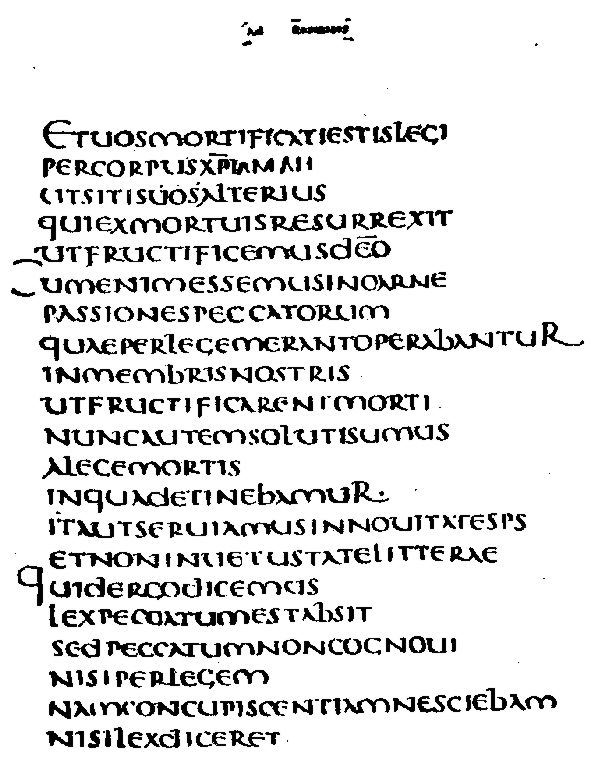 Ad Romanos
ETUOSMORTIFICATIESTISLEGI
PERCORPUSXPI
UTSITISUOSALTERIUS
QUIEXMORTUISRESURREXIT
UTFRUCTIFICEMUSDEO
CUMENIMESSEMUSINCARNE
PASSIONESPECCATORUM
QUAEPERLEGEMERANTOPERABANTUR
INMEMBRISNOSTRIS
UTFRUCTIFICARENTMORTI
NUNCAUTEMSOLUTISUMUS
ALEGEMORTIS
INQUADETINEBAMUR.
ITAUTSERUIAMUSINNOUITATESPS
ETNONINUETUSTATELITTERAE
QUIDERGODICEMUS
LEXPECCATUMESTABSIT
SEDPECCATUMNONCOGNOUI
NISIPERLEGEM
NAMCONCUPISCENTIAMNESCIEBAM
NISILEXDICERET